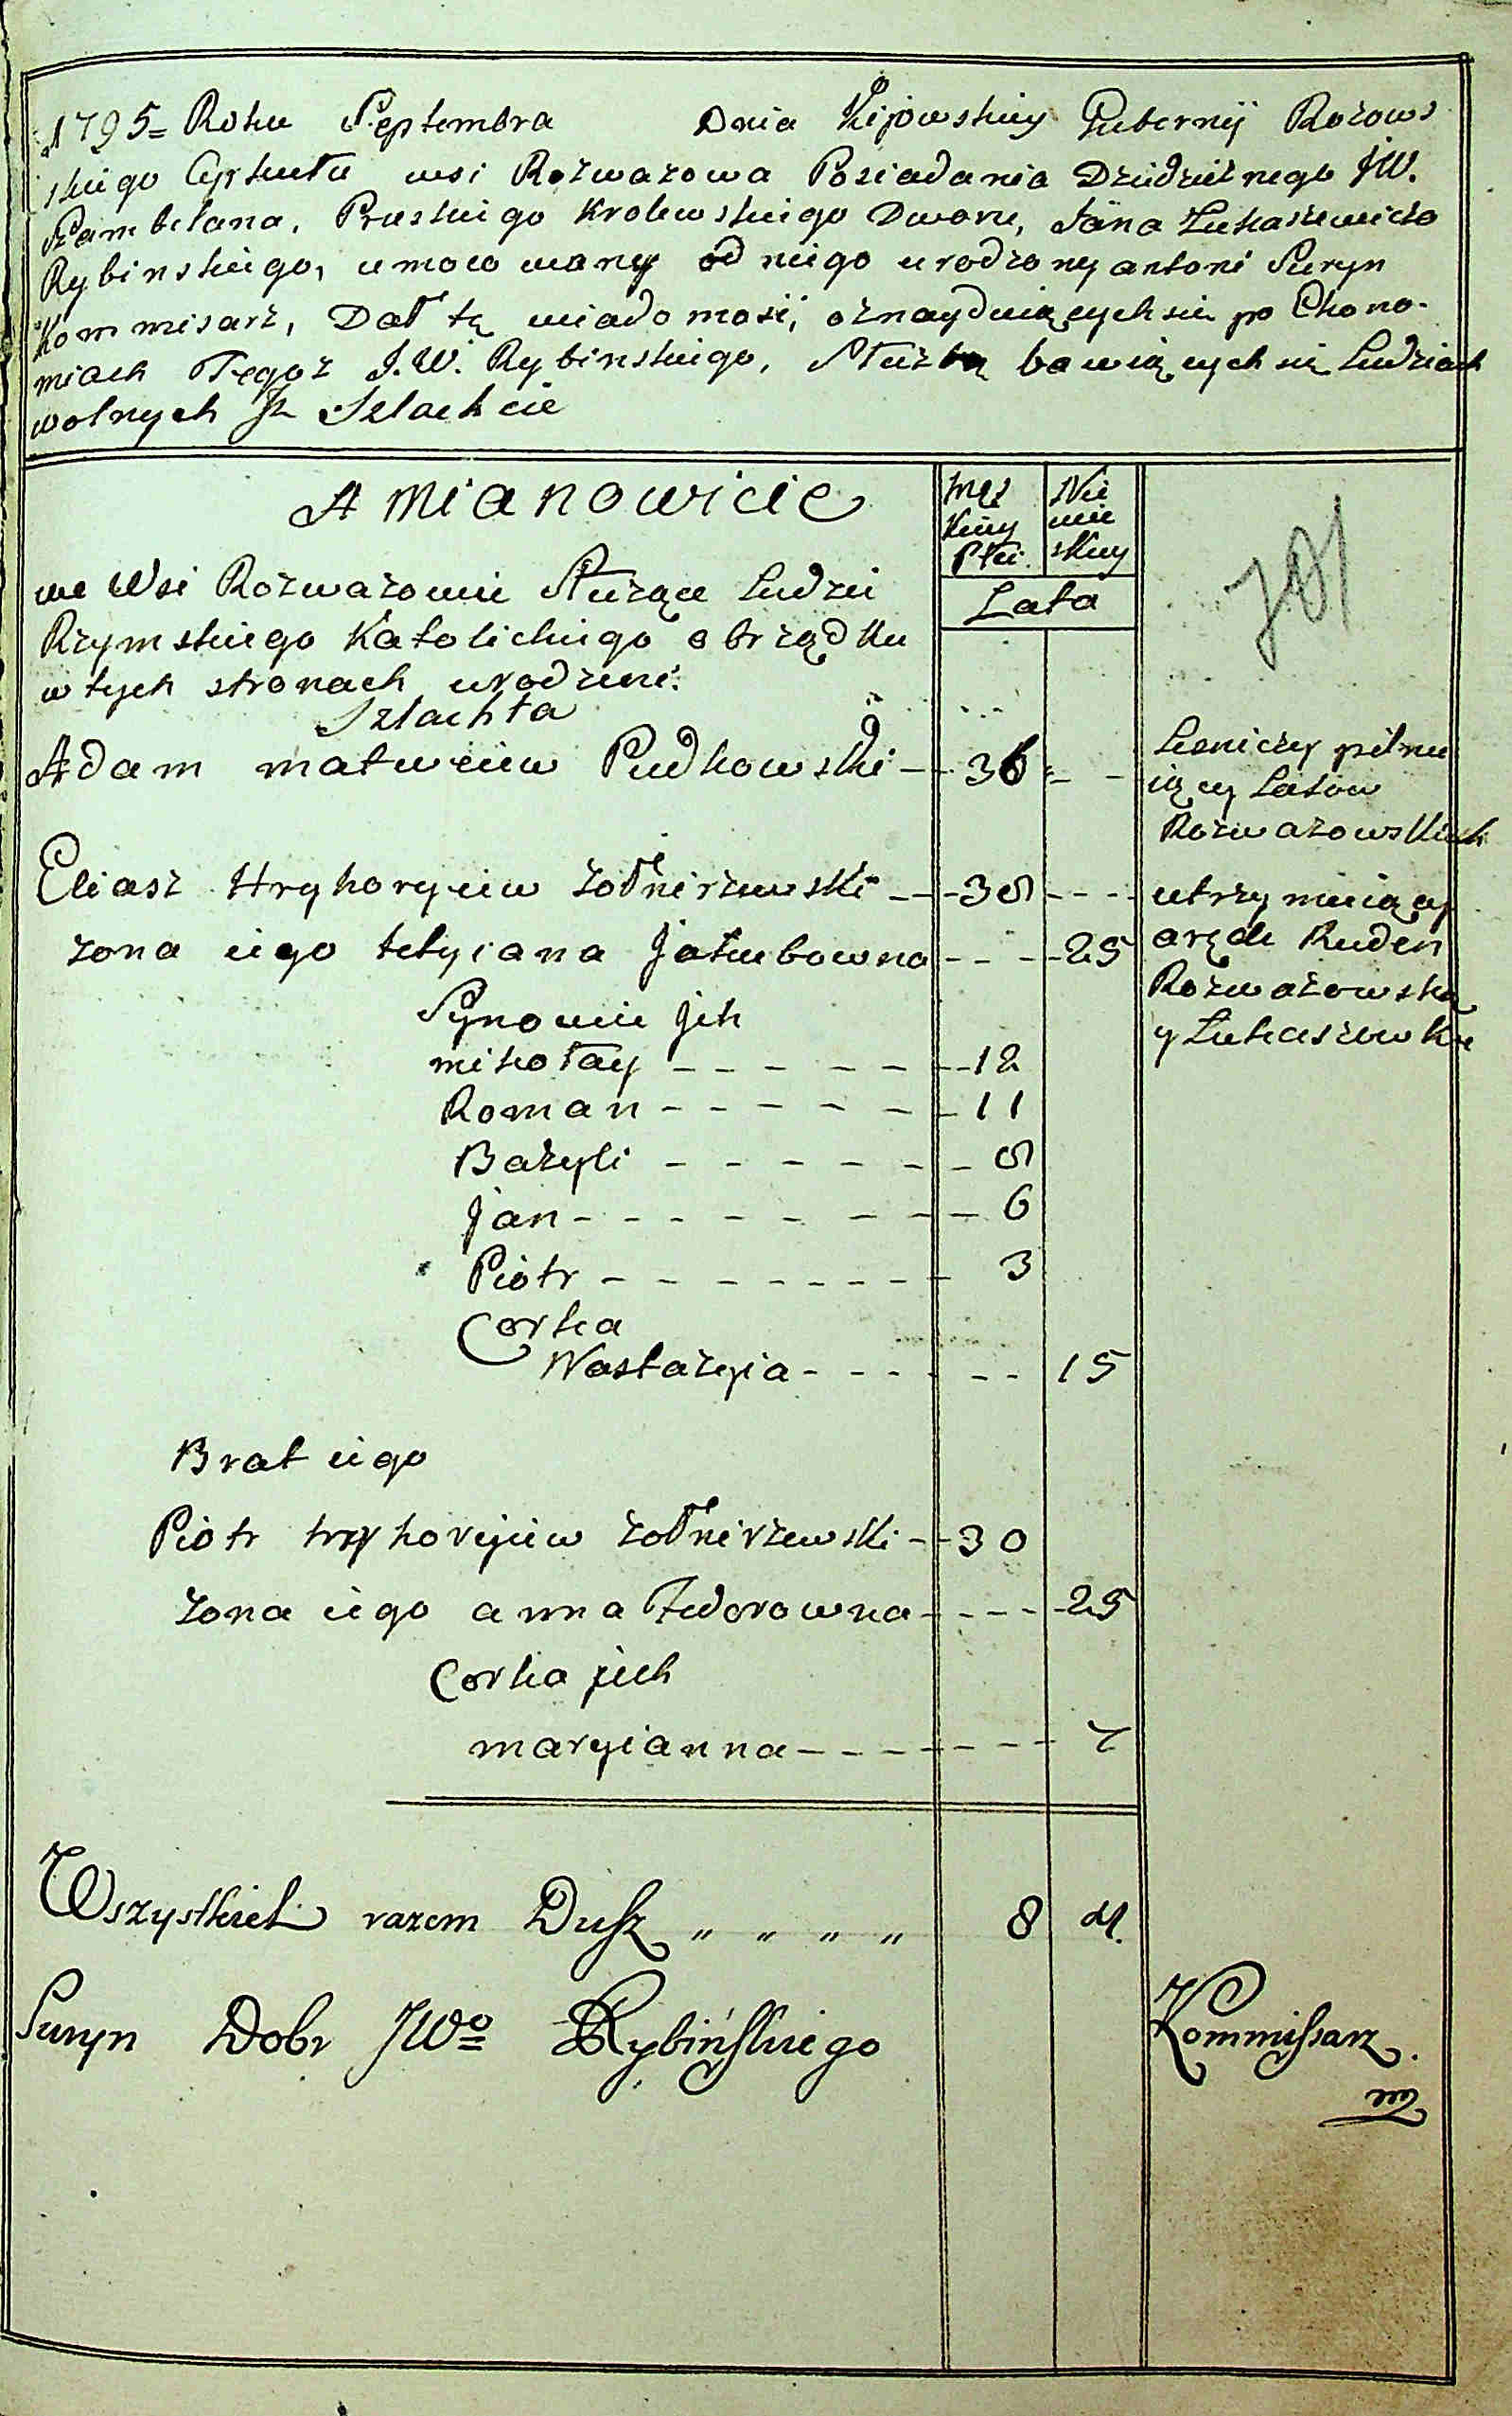 1795= Roku Septembra Dnia Kijowskiey Gubernij Rozows
skiego Cyrkułu wsi Rozważowa Posiadania Dziedziznego JW.
Szambelana, Pruskiego Krolewskiego Dworu, Jana Łukaszewicza
Rybinskiego, umocowany od niego urodzony antoni Suryn
Kommisarz, Dał tę wiadomość, oznayduiących sie po Ekono-
miach Tegoz J.W. Rybinskiego, Służbą bawiących się Ludziach
wolnych Szlachcie
A Mianowicie
męs
kiey
Płci.
Nie
wie
skiey
Lata
we Wsi Rozważowie Służące Ludzie
Rzymskiego Katolickiego obrządku
w tych stronach urodzeni.
Szlachta
Adam matweiew Pudkowski - 36 - -
Lesniczy pilnu
iący Lasow
Rozważowskich
Eliasz Hryhoryiew żołnirzewski - - 38 - - -
żona iego tetyiana Jakubowna - - - 25
utrzymuiący
arędę Ruden
Rozważowską
y Łukaszowkę
Synowie Jch
mikołay - - - - - - - 12
Roman - - - - - - 11
Bazyli - - - - - - 8
Jan - - - - - - - - 6
Piotr - - - - - - - - 3
Corka
Nastazyia - - - - - - 15
Brat iego
Piotr hryhoryiew żołnirzewski - - 30
żona iego anna Fedorowna - - - - 25
Corka jich
maryianna - - - - - - - 7
Wszystkich razem Dusz „ „ „ „ 8 4.
Suryn Dobr JWo Rybińskiego Kommissarz.
mp